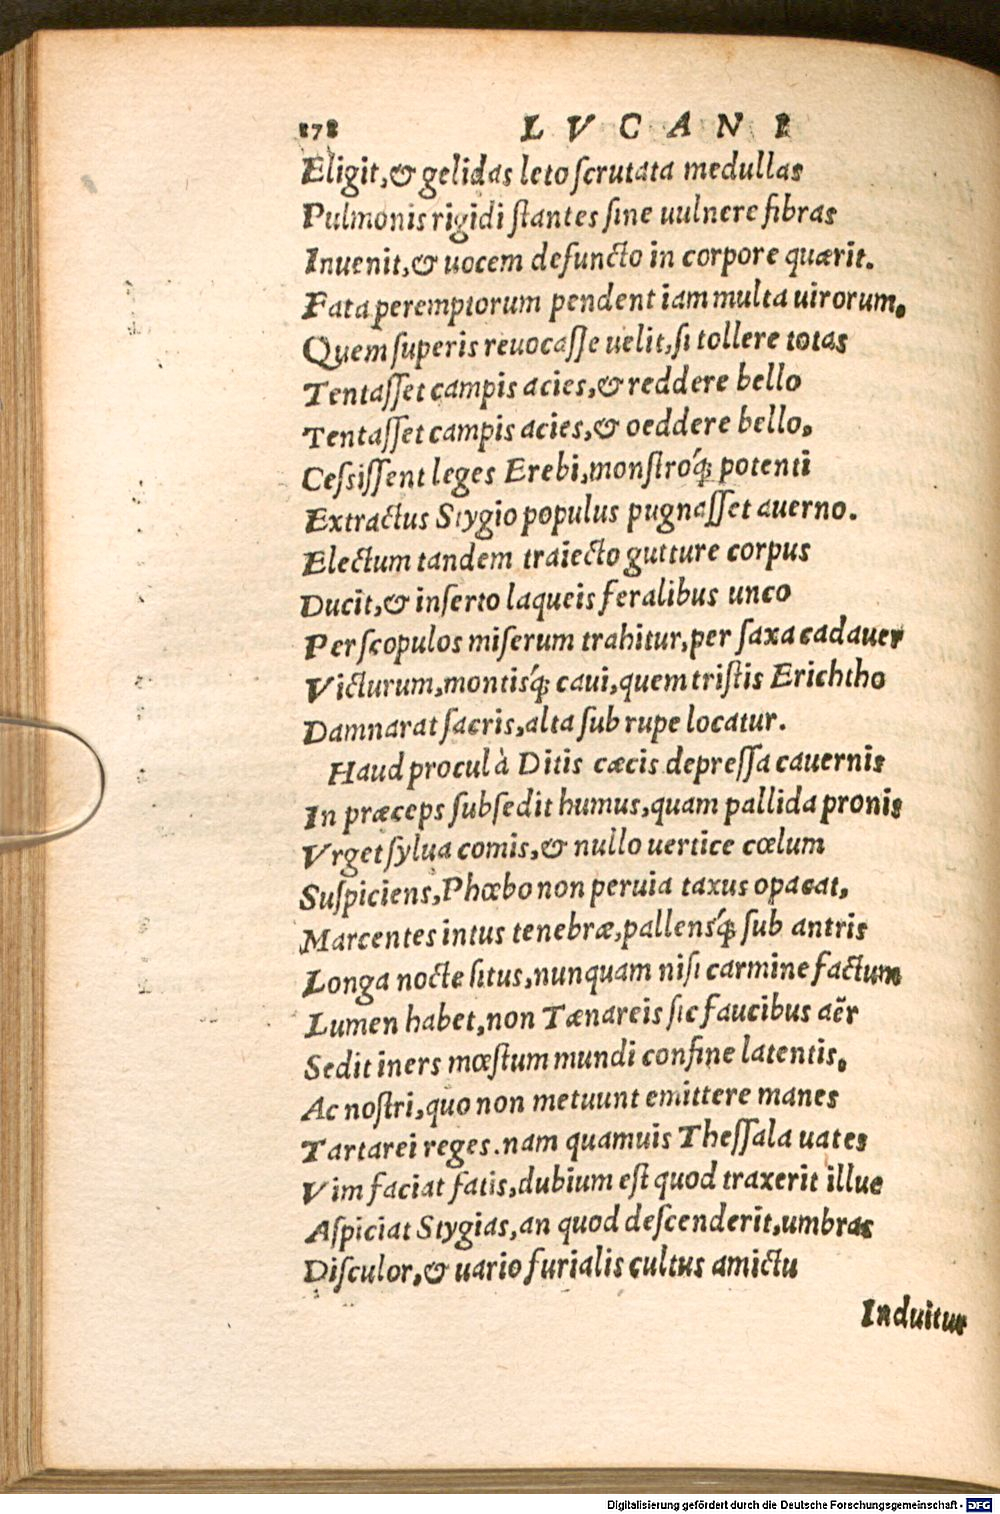 178 LVCANI
Eligit,& gelidas leto scrutata medullas
Pulmonis rigidi stantes sine uulnere fibras
Inuenit,& uocem defuncto in corpore quærit.
Fata peremptorum pendent iam multa uirorum.
Quem superis reuocasse uelit,si tollere totas
Tentasset campis acies,& reddere bello
Tentasset campis acies,& oeddere bello,
Cessissent leges Erebi,monstróq; potenti
Extractus Stygio populus pugnasset auerno.
Electum tandem traiecto gutture corpus
Ducit,& inserto laqueis feralibus unco
Per scopulos miserum trahitur,per saxa cadauer
Victurum,montisq́; caui,quem tristis Erichtho
Damnarat sacris,alta sub rupe locatur.
Haud procul à Ditis cæcis depressa cauernis
In præceps subsedit humus,quam pallida pronis
Vrget sylua comis,& nullo uertice cœlum
Suspiciens,Phœbo non peruia taxus opacat,
Marcentes intus tenebræ,pallensq́; sub antris
Longa nocte situs,nunquam nisi carmine factum
Lumen habet,non Tænareis sic faucibus aër
Sedit iners mœstum mundi confine latentis,
Ac nostri,quo non metuunt emittere manes
Tartarei reges.nam quamuis Thessala uates
Vim faciat fatis,dubium est quod traxerit illuc
Aspiciat Stygias,an quod descenderit,umbras
Disculor,& uario furialis cultus amictu
Induitur
Digitalisierung gefördert durch die Deutsche Forschungsgemeinschaft - DFG